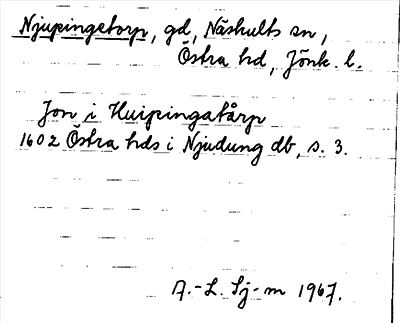 Njupingetorp, gd, Näshults sn,
Östra hd, Jönk. l.
Jon i Huipingatårp
1602 Östra hds i Njudung db, s. 3.
A.-L. Sj-m 1967.